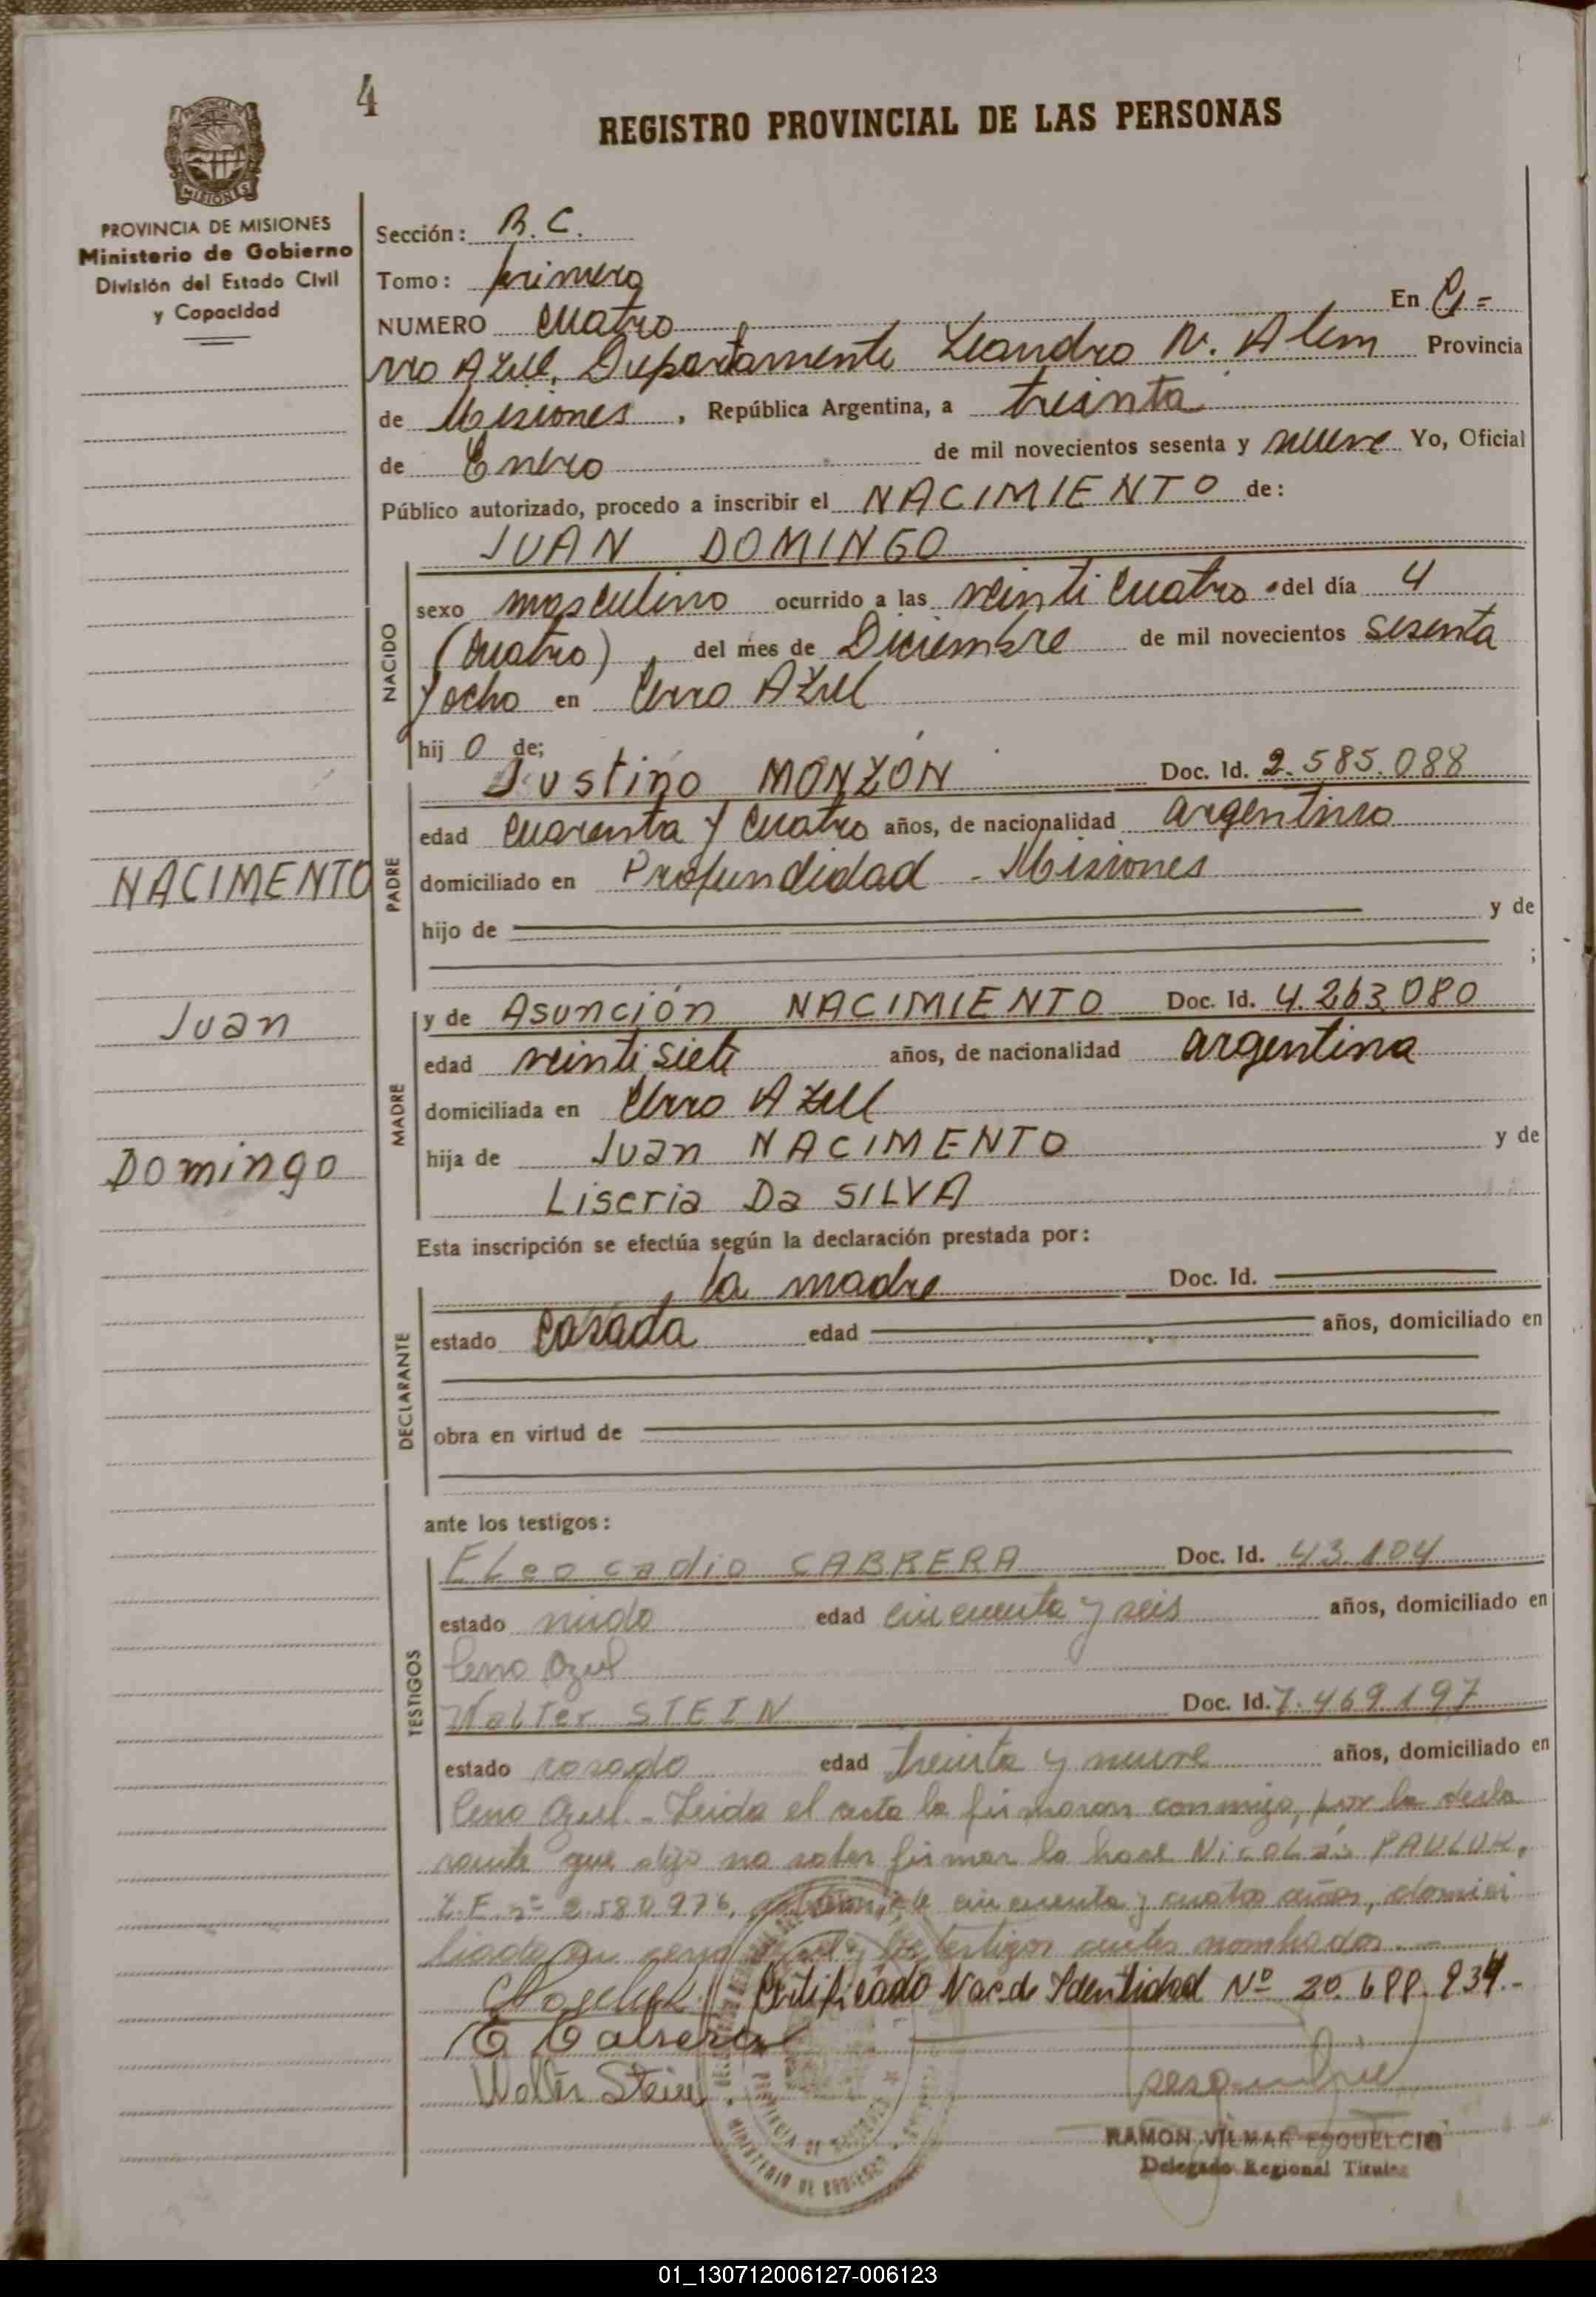 4
REGISTRO PROVINCIAL DE LAS PERSONAS
MISIONES
PROVINCIA DE MISIONES
Ministerio de Gobierno
División del Estado Civil
y Capacidad
Sección: B. C.
Tomo: primero
NUMERO cuatro En Ce=
rro Azul, Departamento Leandro N. Alem Provincia
de Misiones, República Argentina, a treinta
de Enero de mil novecientos sesenta y nueve Yo, Oficial
Público autorizado, procedo a inscribir el NACIMIENTO de:
JUAN DOMINGO
NACIDO
sexo masculino ocurrido a las veinticuatro del día 4
(cuatro), del mes de Diciembre de mil novecientos sesenta
y ocho en Cerro Azul
hijo de;
PADRE
Justino MONZÓN Doc. Id. 2.585.088
edad cuarenta y cuatro años, de nacionalidad argentino
domiciliado en Profundidad - Misiones
hijo de y de
;
NACIMENTO
Juan
Domingo
MADRE
y de Asunción NACIMIENTO Doc. Id. 4.263.080
edad veintisiete años, de nacionalidad argentina
domiciliada en Cerro Azul
hija de Juan NACIMENTO y de
Liseria Da SILVA
Esta inscripción se efectúa según la declaración prestada por:
DECLARANTE
la madre Doc. Id.
estado casada edad años, domiciliado en
obra en virtud de
ante los testigos:
TESTIGOS
ELeocadio CABRERA Doc. Id. 43.104
estado viudo edad cincuenta y seis años, domiciliado en
Cerro Azul
Walter STEIN Doc. Id. 7.469.197
estado casado edad treinta y nueve años, domiciliado en
Cerro Azul - Leida el acta la firmaron conmigo, por la decla
rante que dijo no saber firmar lo hace Nicolás PAULUK,
L.E. nº 2.580.976, de cincuenta y cuatro años, domici
liado en Cerro Azul y los testigos antes nombrados.-
Certificado Nac. de Identidad Nº 20.688.934.-
E Cabrera
Walter Stein
RAMON VILMAR ESQUELCIO
Delegado Regional Titular
01_130712006127-006123